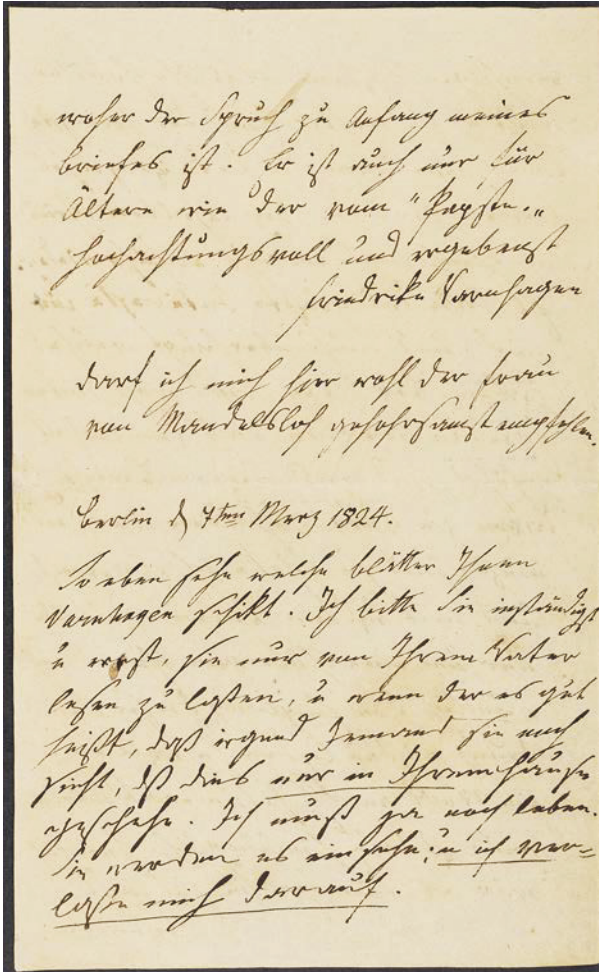 woher der Spruch zu Anfang meines
briefes ist. Er ist auch nur für
Ältere wie der vom "Papste."
Hochachtungsvoll und ergebenst
Friedrike Varnhagen
darf ich mich hier wohl der frau
von Mandelsloh gehohrsamst empfehlen.
berlin d 7ten Merz 1824.
So eben sehe welche blätter Ihnen
Varnhagen schikt. Ich bitte Sie inständigst
u ernst, sie nur von Ihrem Vater
lesen zu laßen, u wenn der es gut
heißt, daß irgend Jemand sie noch
sieht, dß dies nur in Ihrem hause
geschehe. Ich muß ja noch leben.
Sie werden es einsehn; u ich ver=
laße mich darauf.